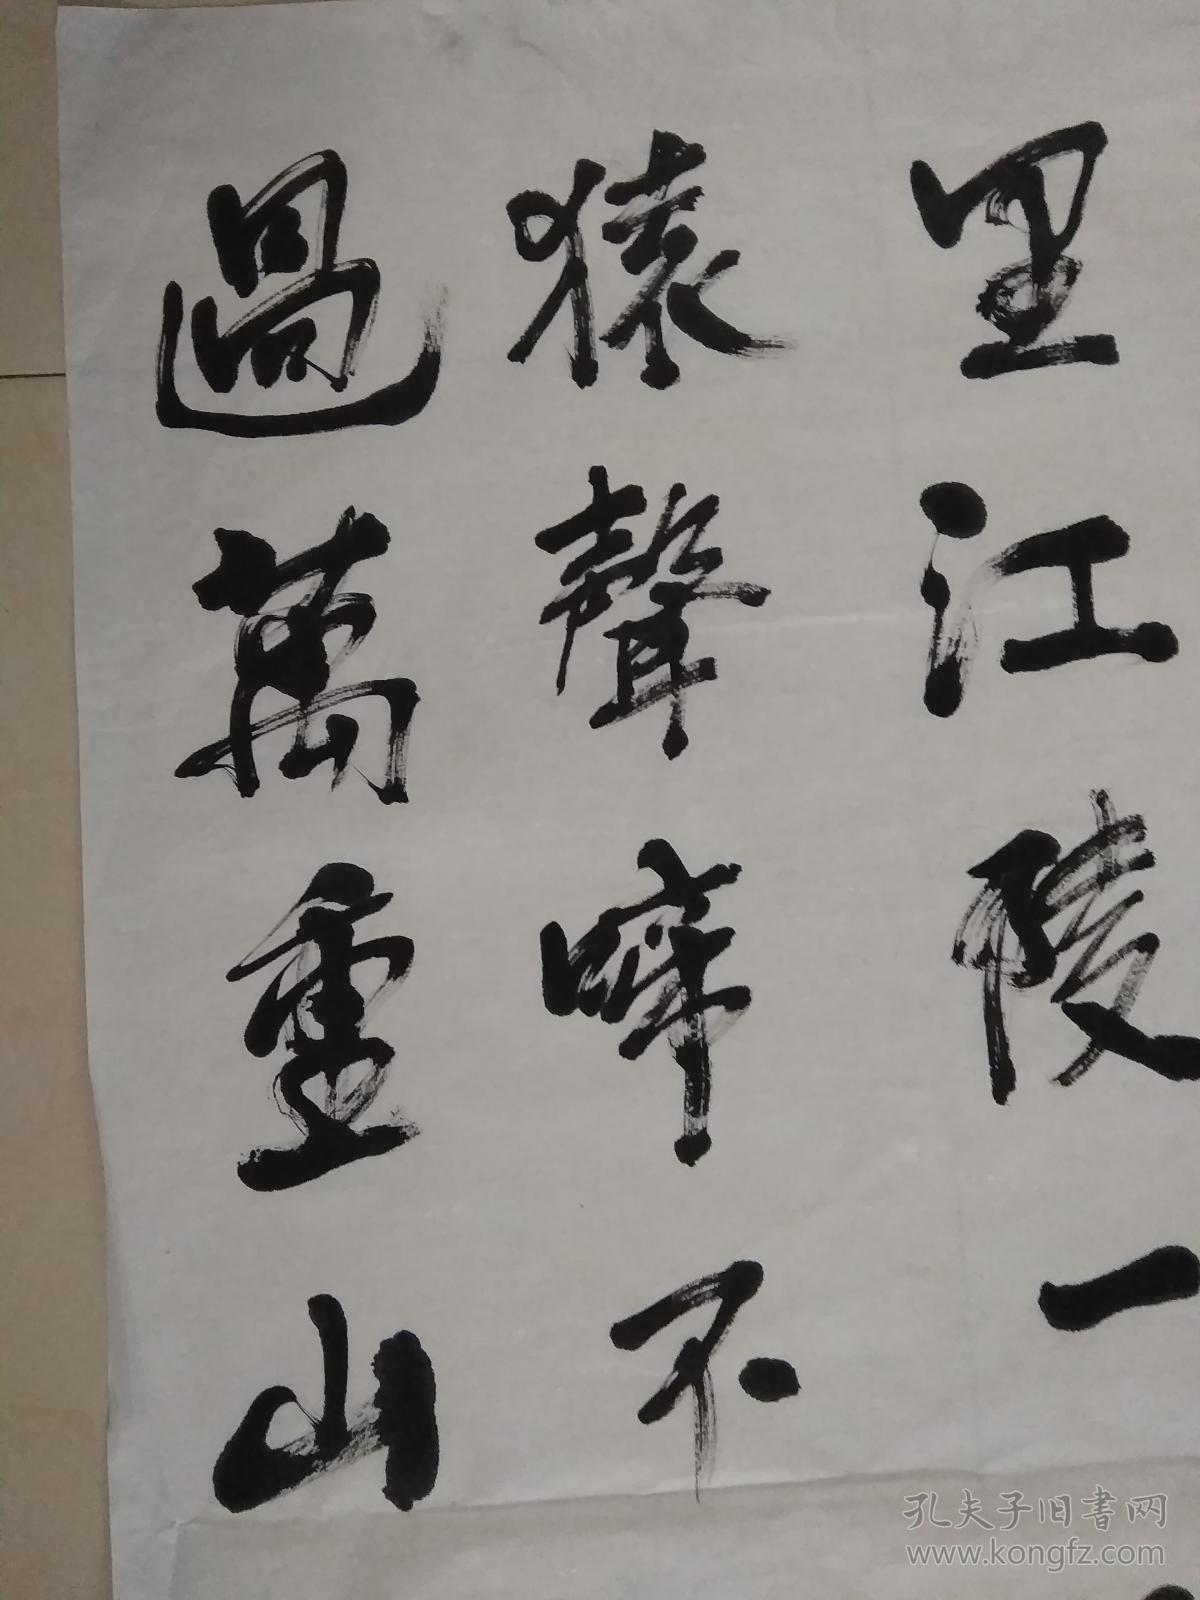 里江陵一
猿聲啼不
過萬重山
孔夫子旧书网
www.kongfz.com